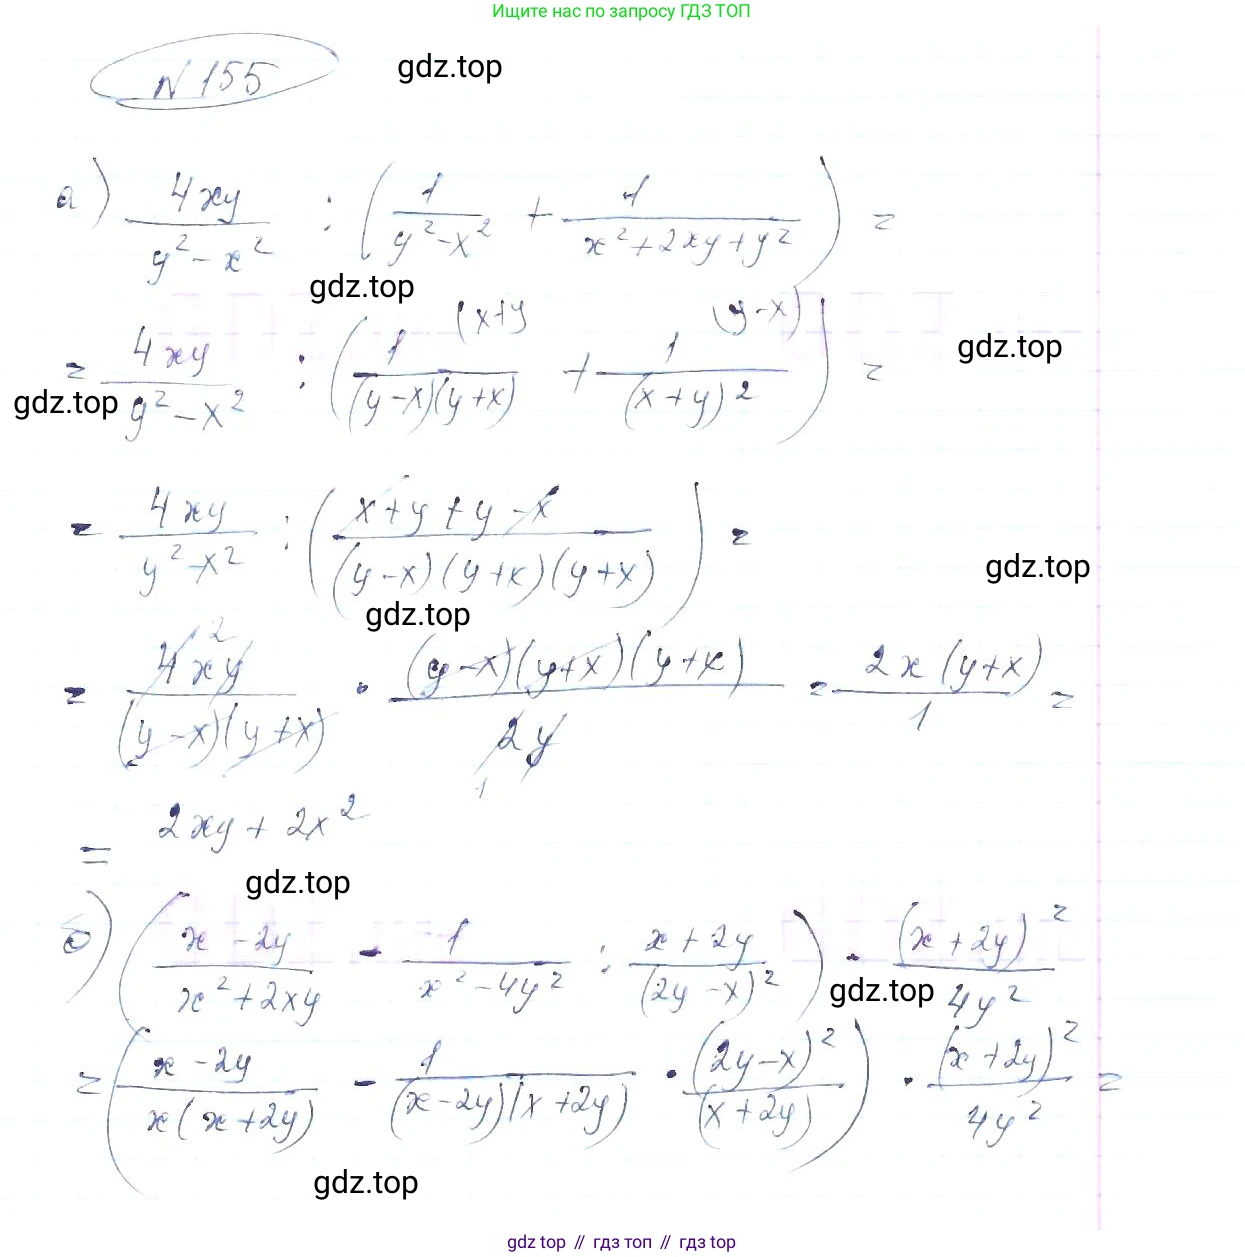 Ищите нас по запросу ГДЗ ТОП
N 155
gdz.top
а) 4xy/(y²-x²) : (1/(y²-x²) + 1/(x²+2xy+y²)) =
gdz.top
= 4xy/(y²-x²) : (1 (x+y)/((y-x)(y+x)) + 1 (y-x)/(x+y)²) =
gdz.top
gdz.top
= 4xy/(y²-x²) : ((x+y+y-x)/((y-x)(y+x)(y+x))) =
gdz.top
gdz.top
= 4xy 2/((y-x)(y+x)) · (y-x)(y+x)(y+x)/2y 1 = 2x(y+x)/1 =
= 2xy + 2x²
gdz.top
б) ((x-2y)/(x²+2xy) - 1/(x²-4y²) : (x+2y)/(2y-x)²) · (x+2y)²/4y²
gdz.top
= ((x-2y)/(x(x+2y)) - 1/((x-2y)(x+2y)) · (2y-x)²/(x+2y)) · (x+2y)²/4y² =
gdz.top
gdz top // гдз топ // гдз top